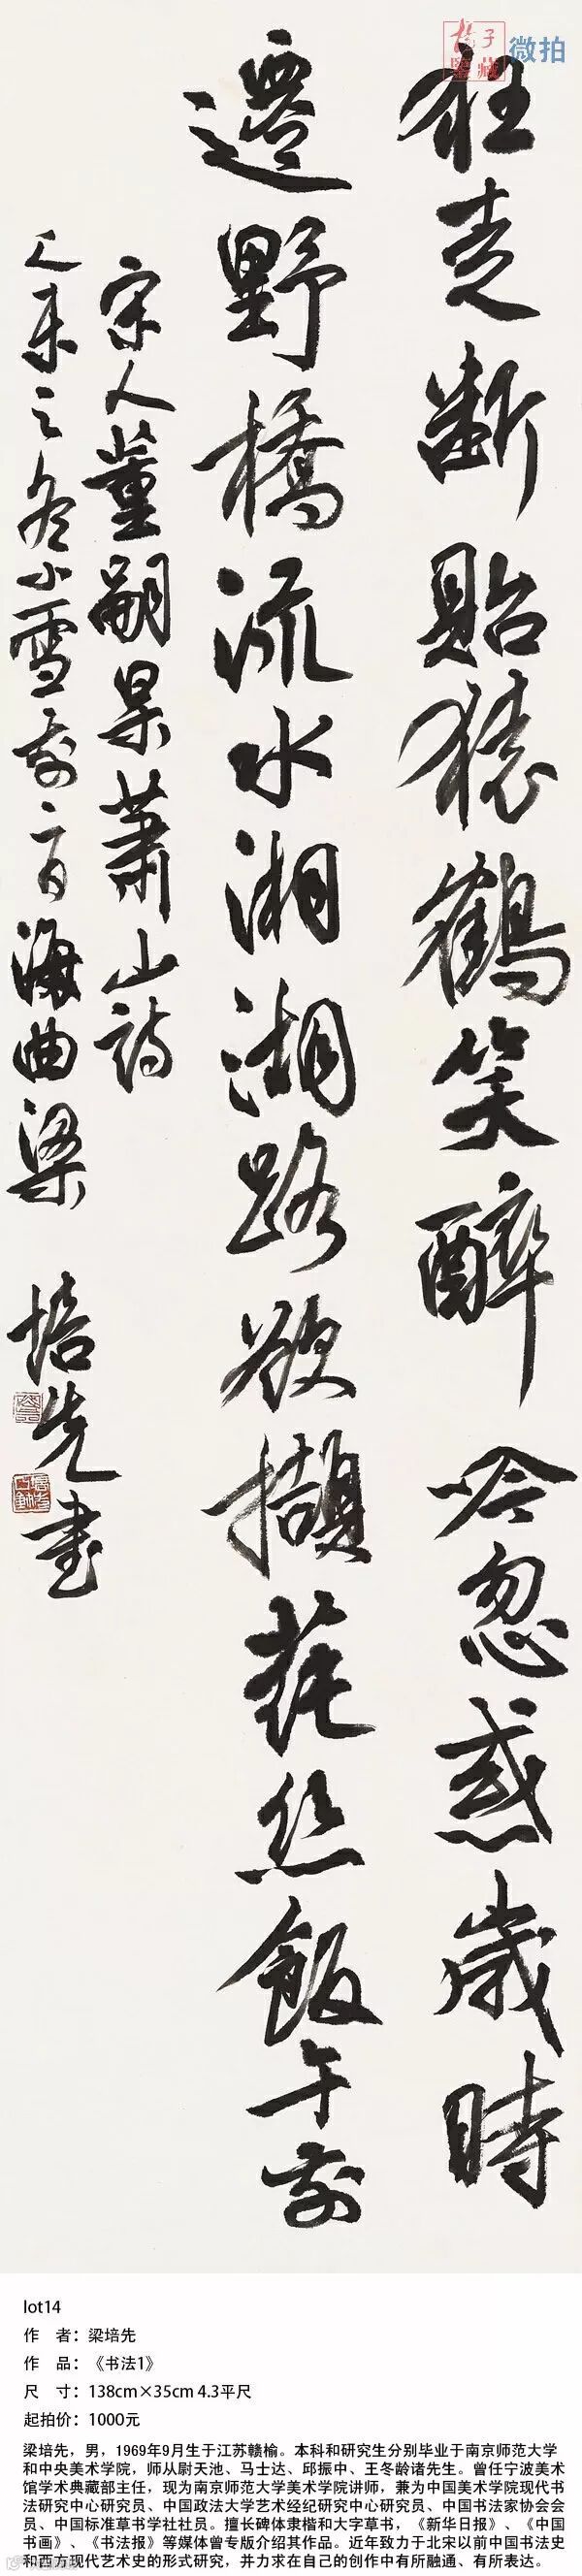 狂走断貽猿鶴笑醉吟忽惑歲時
遷野橋流水湘湖路欲擷蒓絲飯午前
宋人董嗣杲蕭山詩
乙未之冬小雪前二日海曲梁培先書
孑藏
微拍
lot14
作 者：梁培先
作 品：《书法1》
尺 寸：138cm×35cm 4.3平尺
起拍价：1000元
梁培先，男，1969年9月生于江苏赣榆。本科和研究生分别毕业于南京师范大学
和中央美术学院，师从尉天池、马士达、邱振中、王冬龄诸先生。曾任宁波美术
馆学术典藏部主任，现为南京师范大学美术学院讲师，兼为中国美术学院现代书
法研究中心研究员、中国政法大学艺术经纪研究中心研究员、中国书法家协会会
员、中国标准草书学社社员。擅长碑体隶楷和大字草书，《新华日报》、《中国
书画》、《书法报》等媒体曾专版介绍其作品。近年致力于北宋以前中国书法史
和西方现代艺术史的形式研究，并力求在自己的创作中有所融通、有所表达。